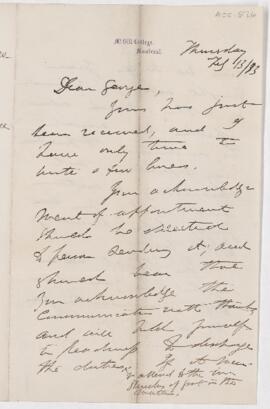 Acc-826
McGill College,
Montreal.
Thursday
Feby 15/83
Dear George,
Yours has just
been received, and I
have only time to
write a few lines.
Your acknowledge
ment of appointment
should be directed
to person sending it, and
should bear that
you acknowledge the
communication with thanks
and will hold yourself
in readiness to discharge
the duties.
& attend to the
of in the